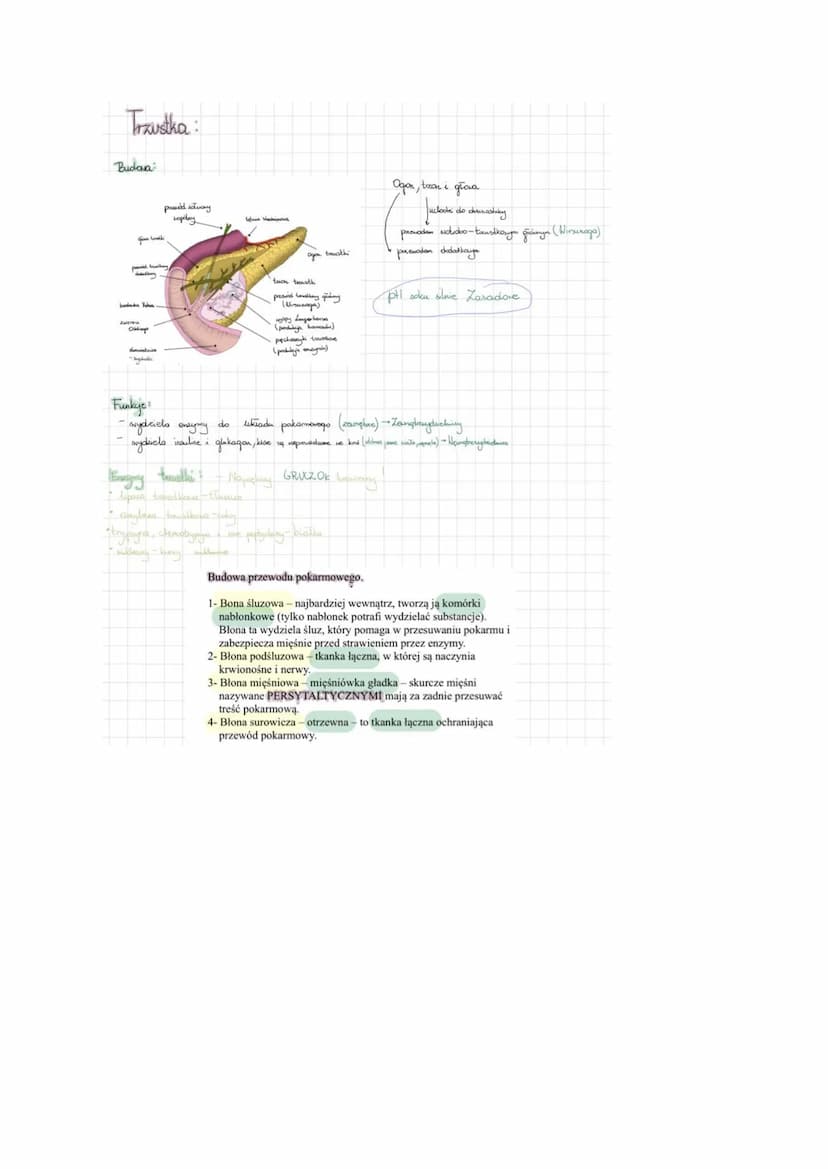 Trzustka:
Budowa:
przewód żółciowy
wspólny
ogon trzustki
trzon trzustki
przewód trzustkowy główny
(Wirsunga)
wyspy Langerhansa
(produkują hormony)
pęcherzyki trzustkowe
(produkują enzymy)
brodawka Vatera
zwieracz
Oddiego
dwunastnica
Ogon, trzon i głowa
uchodzi do dwunastnicy
przewodem żółciowo-trzustkowym głównym (Wirsunga)
przewodem dodatkowym
pH soku silnie Zasadowe
Funkcje:
- wydziela enzymy do układu pokarmowego (zewnętrzne) → Zewnątrzwydzielniczy
- wydziela insulinę i glukagon, które są wprowadzane do krwi
Enzymy trzustki: - Największy GRUCZOŁ trawienny!
* lipaza trzustkowa - tłuszcze
* amylaza trzustkowa - cukry
* trypsyna, chemotrypsyna i inne peptydazy - białka
* nukleazy - kwasy nukleinowe
Budowa przewodu pokarmowego.
1- Bona śluzowa – najbardziej wewnątrz, tworzą ją komórki
nabłonkowe (tylko nabłonek potrafi wydzielać substancje).
Błona ta wydziela śluz, który pomaga w przesuwaniu pokarmu i
zabezpiecza mięśnie przed strawieniem przez enzymy.
2- Błona podśluzowa – tkanka łączna, w której są naczynia
krwionośne i nerwy.
3- Błona mięśniowa – mięśniówka gładka – skurcze mięśni
nazywane PERSYTALTYCZNYMI mają za zadnie przesuwać
treść pokarmową.
4- Błona surowicza – otrzewna – to tkanka łączna ochraniająca
przewód pokarmowy.